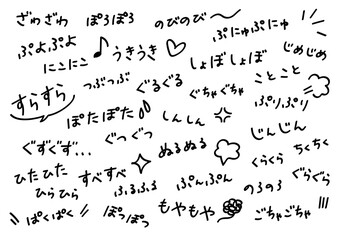 ざわざわ
ぽろぽろ
のびのび
ぷにゅぷにゅ
ぷよぷよ
うきうき
じめじめ
にこにこ
しょぼしょぼ
ことこと
つぶつぶ
ぐるぐる
すらすら
ぐちゃぐちゃ
ぷりぷり
ぽたぽた
しんしん
じんじん
ぐずぐず…
ぐつぐつ
ぬるぬる
ちくちく
ひたひた
すべすべ
くらくら
ひらひら
ふるふる
ぷんぷん
のろのろ
ぐらぐら
ぱくぱく
ぽつぽつ
もやもや
ごちゃごちゃ